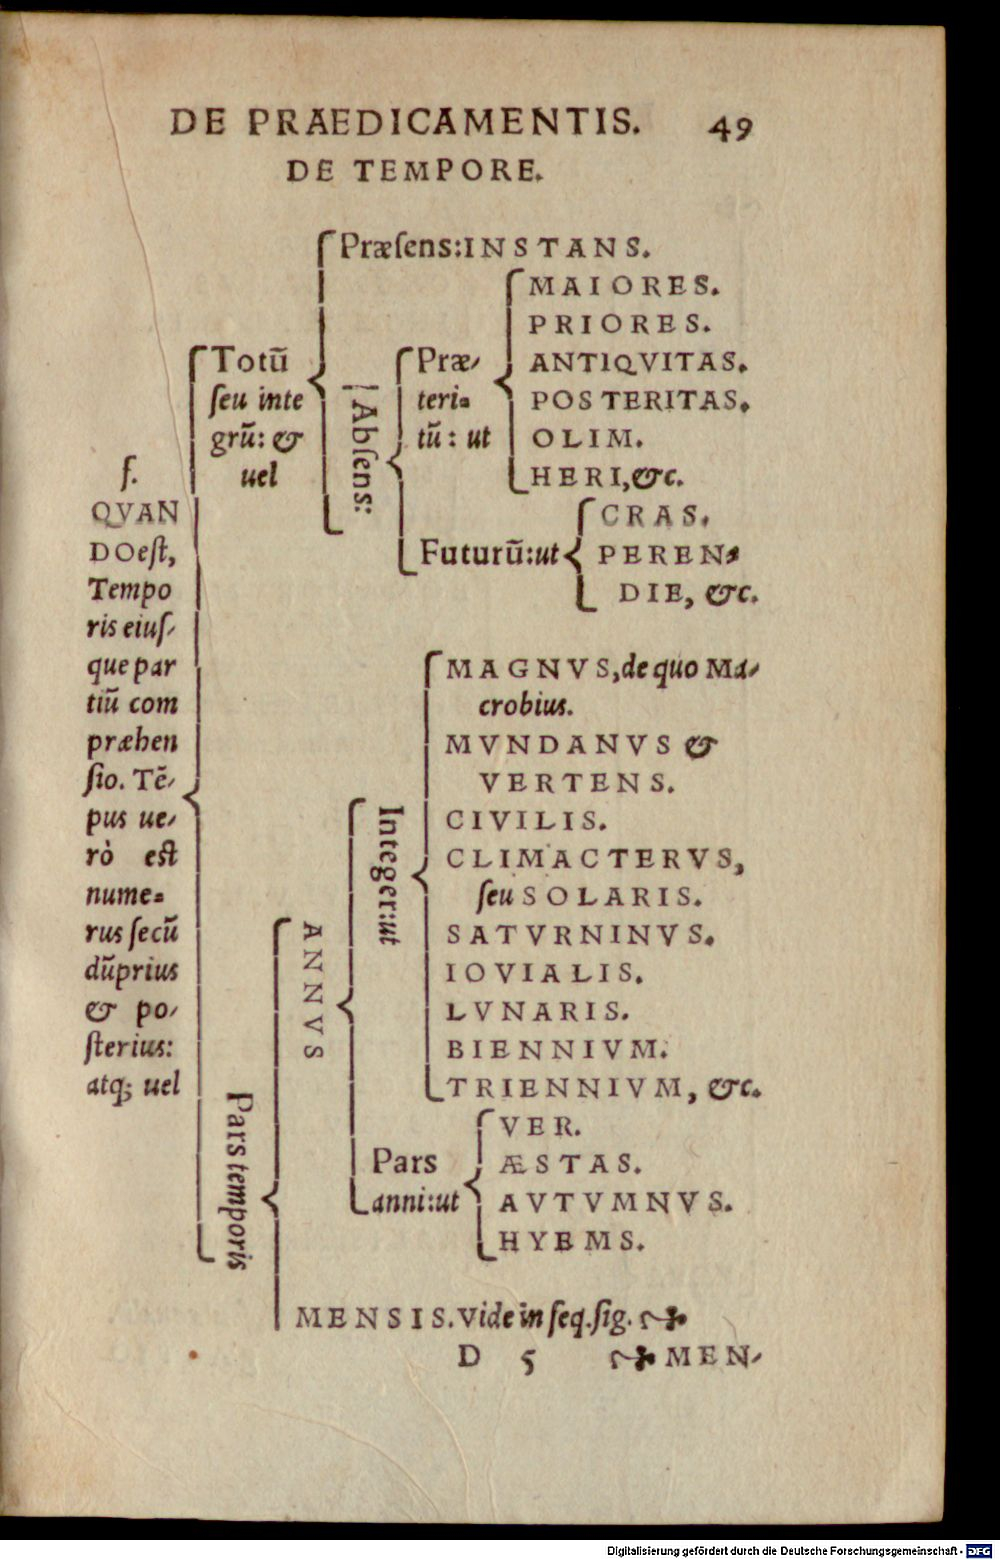 DE PRAEDICAMENTIS. 49
DE TEMPORE.
ſ.
QVAN
DOeſt,
Tempo
ris eiuſ-
que par
tiū com
præhen
ſio. Tē-
pus ue-
rò eſt
nume-
rus ſecū
dūprius
& po-
ſterius:
atq; uel
Totū
ſeu inte
grū: &
uel
Præſens: INSTANS.
Abſens:
Præ-
teri-
tū: ut
MAIORES.
PRIORES.
ANTIQVITAS.
POSTERITAS.
OLIM.
HERI, &c.
Futurū: ut
CRAS.
PEREN-
DIE, &c.
Pars temporis
ANNVS
Integer: ut
MAGNVS, de quo Ma-
crobius.
MVNDANVS &
VERTENS.
CIVILIS.
CLIMACTERVS,
ſeu SOLARIS.
SATVRNINVS.
IOVIALIS.
LVNARIS.
BIENNIVM.
TRIENNIVM, &c.
Pars
anni: ut
VER.
ÆSTAS.
AVTVMNVS.
HYEMS.
MENSIS. Vide in ſeq. ſig.
D 5 MEN-
Digitalisierung gefördert durch die Deutsche Forschungsgemeinschaft - DFG